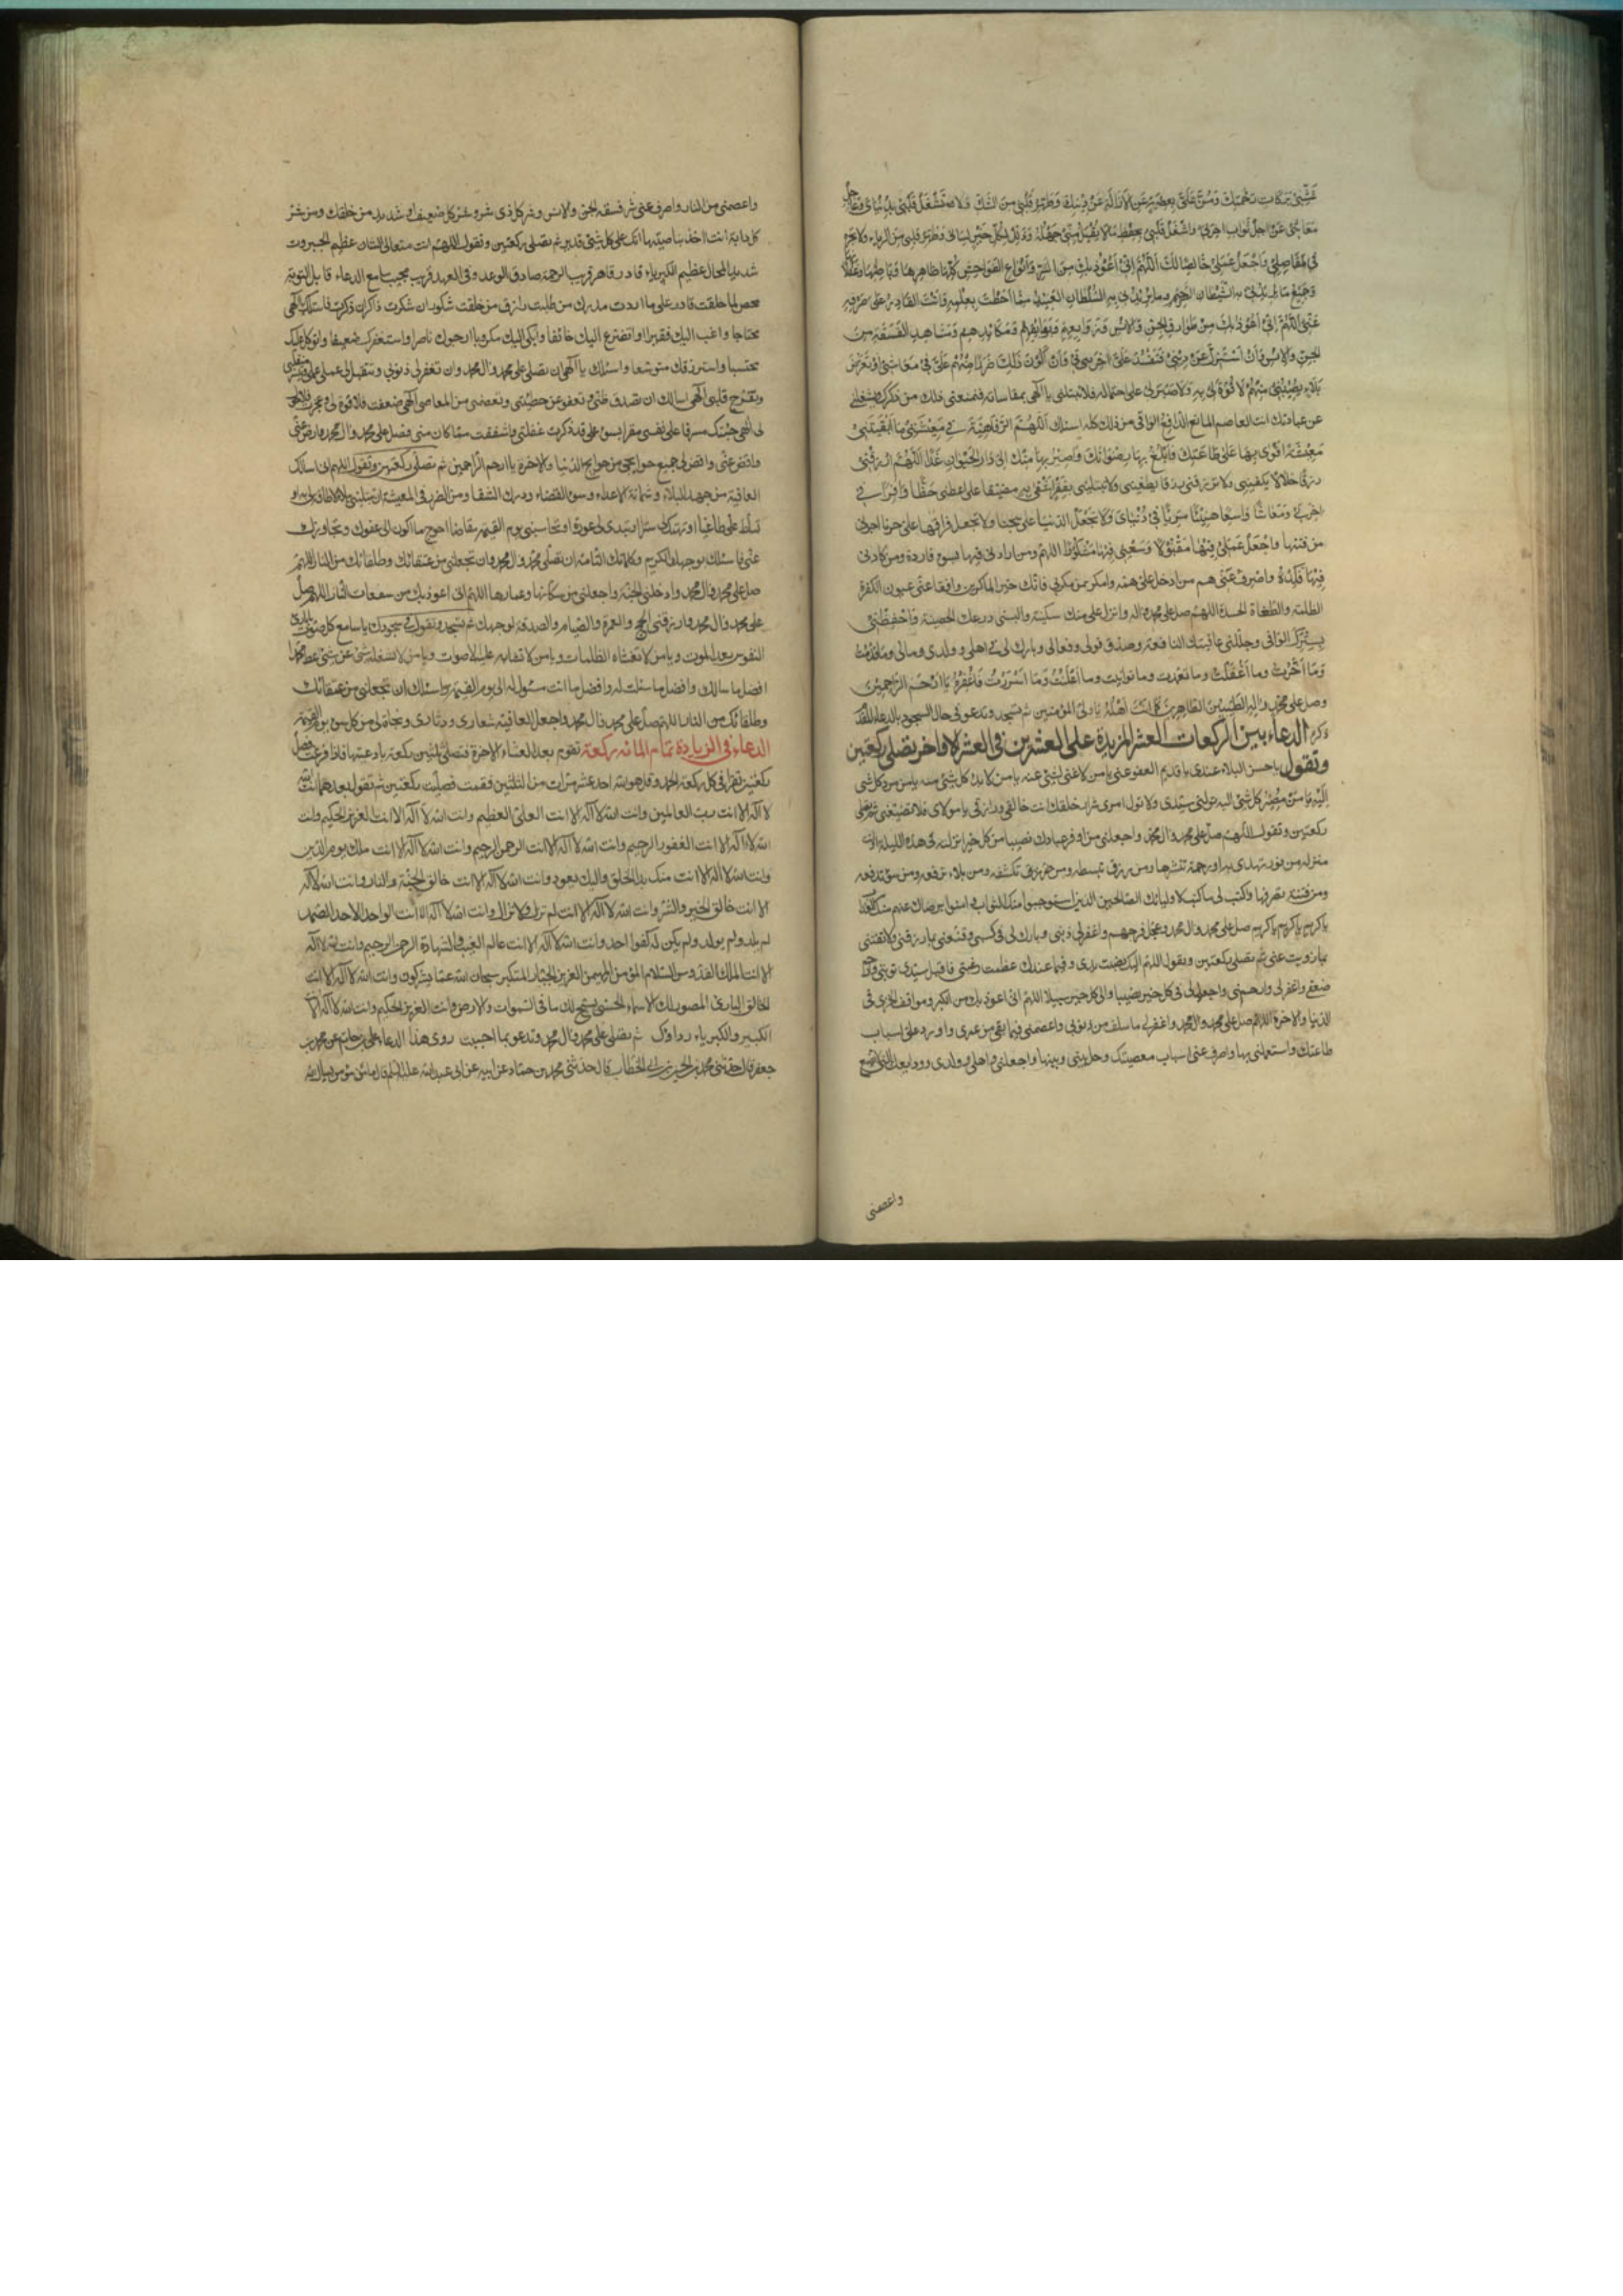 غشني ببركات رحمتك ومن علي برافة عن الازالة عن دينك وطهر قلبي من الشك ولا تشغل قلبي بدنياي وعاجل
معاشي عن اجل ثواب اخرتي واشغل قلبي بحفظ ما لا يقبل مني جهله وذلل لكل خير لساني وطهر قلبي من الرياء ولا تجره
في مفاصلي واجعل عملي خالصا لك اللهم اني اعوذ بك من الشر وانواع الفواحش كلها ظاهرها وباطنها وغفلاتها
وجميع ما يريدني به الشيطان الرجيم وما يريدني به السلطان العنيد مما احطت بعلمه وانت القادر على صرفه
عني اللهم اني اعوذ بك من طوارق الجن والانس وزوابعهم وبوائقهم ومكائدهم ومشاهد الفسقة من
الجن والانس وان استزل عن ديني فتفسد علي اخرتي وان يكون ذلك ضررا منهم علي في معاشي او تعرض
بلاء يصيبني منهم لا قوة لي به ولا صبر لي على احتماله فلا تبتلني يا الهي بمقاساته فيمنعني ذلك من ذكرك ويشغلني
عن عبادتك انت العاصم المانع الدافع الواقي من ذلك كله اسئلك اللهم الرفاهية في معيشتي ما ابقيتني
معيشة اقوى بها على طاعتك وابلغ بها رضوانك واصير بها منك الى دار الحيوان غدا اللهم ارزقني
رزقا حلالا يكفيني ولا ترزقني رزقا يطغيني ولا تبتليني بفقر اشقى به مضيقا علي اعطني حظا وافرا في
اخرتي ومعاشا واسعا هنيئا مريئا في دنياي ولا تجعل الدنيا علي سجنا ولا تجعل فراقها علي حزنا اجرني
من فتنتها واجعل عملي فيها مقبولا وسعيي فيها مشكورا اللهم ومن ارادني فيها بسوء فارده ومن كادني
فيها فكده واصرف عني هم من ادخل علي همه وامكر بمن مكر بي فانك خير الماكرين وافقا عني عيون الكفرة
الظلمة والطغاة الحسدة اللهم صل على محمد واله وانزل علي منك سكينة والبسني درعك الحصينة واحفظني
بسترك الواقي وجللني عافيتك النافعة وصدق قولي وفعالي وبارك لي في اهلي وولدي ومالي وما قدمت
وما اخرت وما اغفلت وما تعمدت وما توانيت وما اعلنت وما اسررت فاغفره يا ارحم الراحمين
وصل على محمد واله الطيبين الطاهرين كما انت اهله يا ولي المؤمنين ثم تسجد وتدعو في حال السجود بالدعاء المقدم
ذكره الدعاء بين الركعات العشر المزيدة على العشرين في العشر الاواخر تصلي ركعتين
وتقول يا حسن البلاء عندي يا قديم العفو عني يا من لا غنى لشيء عنه يا من لا بد لكل شيء منه يا من مرد كل شيء
اليه يا من مصير كل شيء اليه تولني سيدي ولا تول امري شرار خلقك انت خالقي ورازقي يا مولاي فلا تضيعني ثم تصلي
ركعتين وتقول اللهم صل على محمد وال محمد واجعلني من اوفر عبادك نصيبا من كل خير انزلته في هذه الليلة او انت
منزله من نور تهدي به او رحمة تنشرها ومن رزق تبسطه ومن ضر تكشفه ومن بلاء ترفعه ومن سوء تدفعه
ومن فتنة تصرفها واكتب لي ما كتبت لاوليائك الصالحين الذين استوجبوا منك الثواب وامنوا برضاك عنهم منك العذاب
يا كريم يا كريم يا كريم صل على محمد وال محمد وعجل فرجهم واغفر لي ذنبي وبارك لي في كسبي وقنعني بما رزقتني ولا تفتني
بما زويت عني ثم تصلي ركعتين وتقول اللهم اليك نصبت يدي وفيما عندك عظمت رغبتي فاقبل سيدي توبتي وارحم
ضعفي واغفر لي وارحمني واجعل لي في كل خير نصيبا والى كل خير سبيلا اللهم اني اعوذ بك من الكبر ومواقف الخزي في
الدنيا والاخرة اللهم صل على محمد وال محمد واغفر لي ما سلف من ذنوبي واعصمني فيما بقي من عمري واورد علي اسباب
طاعتك واستعملني بها واصرف عني اسباب معصيتك وحل بيني وبينها واجعلني واهلي وولدي وودايعك التي لا تضيع
واعصمني
واعصمني من النار واصرف عني شر فسقة الجن والانس وشر كل ذي شر وشر كل ضعيف او شديد من خلقك ومن شر
كل دابة انت اخذ بناصيتها انك على كل شيء قدير ثم تصلي ركعتين وتقول اللهم انت متعالي الشان عظيم الجبروت
شديد المحال عظيم الكبرياء قادر قاهر قريب الرحمة صادق الوعد وفي العهد قريب مجيب سامع الدعاء قابل التوبة
محص لما خلقت قادر على ما اردت مدرك من طلبت رازق من خلقت شكور ان شكرت ذاكر ان ذكرت فاسئلك يا الهي
محتاجا وارغب اليك فقيرا واتضرع اليك خائفا وابكي اليك مكروبا وارجوك ناصرا واستغفرك ضعيفا واتوكل عليك
محتسبا واسترزقك متوسعا واسئلك يا الهي ان تصلي على محمد وال محمد وان تغفر لي ذنوبي وتتقبل لي عملي وتيسر منقلبي
وتفرج قلبي الهي اسالك ان تصدق ظني وتعفو عن خطيئتي وتعصمني من المعاصي الهي ضعفت فلا قوة لي وعجزت فلا حول
لي الهي جئتك مسرفا على نفسي مقرا بسوء عملي قد ذكرت غفلتي واشفقت مما كان مني فصل على محمد وال محمد وارض عني
واقض عني واقض لي جميع حوائجي من حوائج الدنيا والاخرة يا ارحم الراحمين ثم تصلي ركعتين وتقول اللهم اني اسالك
العافية من جهد البلاء وشماتة الاعداء وسوء القضاء ودرك الشقاء ومن الضرر في المعيشة وان تبتليني ببلاء لا طاقة لي به او
تسلط علي طاغيا او تهتك لي سترا او تبدي لي عورة او تحاسبني يوم القيمة مقاصا احوج ما اكون الى عفوك وتجاوزك
عني فاسئلك بوجهك الكريم وكلماتك التامة ان تصلي على محمد وال محمد وان تجعلني من عتقائك وطلقائك من النار اللهم
صل على محمد وال محمد وادخلني الجنة واجعلني من سكانها وعمارها اللهم اني اعوذ بك من سفعات النار اللهم صل
على محمد وال محمد وارزقني الحج والعمرة والصيام والصدقة لوجهك ثم تسجد وتقول في سجودك يا سامع كل صوت ويا بارئ
النفوس بعد الموت ويا من لا تغشاه الظلمات ويا من لا تتشابه عليه الاصوات ويا من لا تشغله شيء عن شيء اعط محمدا
افضل ما سالك وافضل ما سئلت له وافضل ما انت مسئول له الى يوم القيمة واسئلك ان تجعلني من عتقائك
وطلقائك من النار اللهم صل على محمد وال محمد واجعل العافية شعاري ودثاري ونجاة لي من كل سوء يوم القيمة
الدعاء في الزيادة تمام المائة ركعة تقوم بعد العشاء الاخرة فتصلي ثلثين ركعة بادعيتها فاذا فرغت فصل
ركعتين تقرا في كل ركعة الحمد وقل هو الله احد عشر مرات من الثلثين فقمت فصليت ركعتين ثم تقول بعدهما انت الله
لا اله الا انت رب العالمين وانت الله لا اله الا انت العلي العظيم وانت الله لا اله الا انت العزيز الحكيم وانت
الله لا اله الا انت الغفور الرحيم وانت الله لا اله الا انت الرحمن الرحيم وانت الله لا اله الا انت ملك يوم الدين
وانت الله لا اله الا انت منك بدا الخلق واليك يعود وانت الله لا اله الا انت خالق الجنة والنار وانت الله لا اله
الا انت خالق الخير والشر وانت الله لا اله الا انت لم تزل ولا تزال وانت الله لا اله الا انت الواحد الاحد الصمد
لم يلد ولم يولد ولم يكن له كفوا احد وانت الله لا اله الا انت عالم الغيب والشهادة الرحمن الرحيم وانت الله لا اله
الا انت الملك القدوس السلام المؤمن المهيمن العزيز الجبار المتكبر سبحان الله عما يشركون وانت الله لا اله الا انت
الخالق البارئ المصور لك الاسماء الحسنى يسبح لك ما في السموات والارض وانت العزيز الحكيم وانت الله لا اله الا انت
الكبير والكبرياء رداؤك ثم تصلي على محمد وال محمد وتدعو بما احببت روى هذا الدعاء علي بن حاتم عن محمد بن
جعفر قال حدثني محمد بن الحسين بن ابي الخطاب قال حدثني محمد بن حماد عن ابيه عن ابي عبد الله عليه السلام قال ما من مؤمن يسال الله